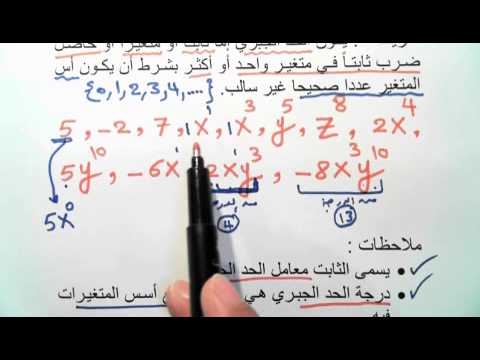 يكون الحد الجبري إما ثابتاً أو متغيراً أو حاصل
ضرب ثابتاً في متغير واحد أو أكثر بشرط أن يكون أس
المتغير عددا صحيحا غير سالب. {0,1,2,3,4,....}
5 , -2 , 7 , 1x¹ , 1x³ , y⁵ , z⁸ , 2x⁴ ,
5y¹⁰ , -6x¹ , 2xy³ , -8x³y¹⁰
5x⁰ من الدرجة 4 من الدرجة 13
ملاحظات :
يسمى الثابت معامل الحد
درجة الحد الجبري هي أسس المتغيرات
فيه